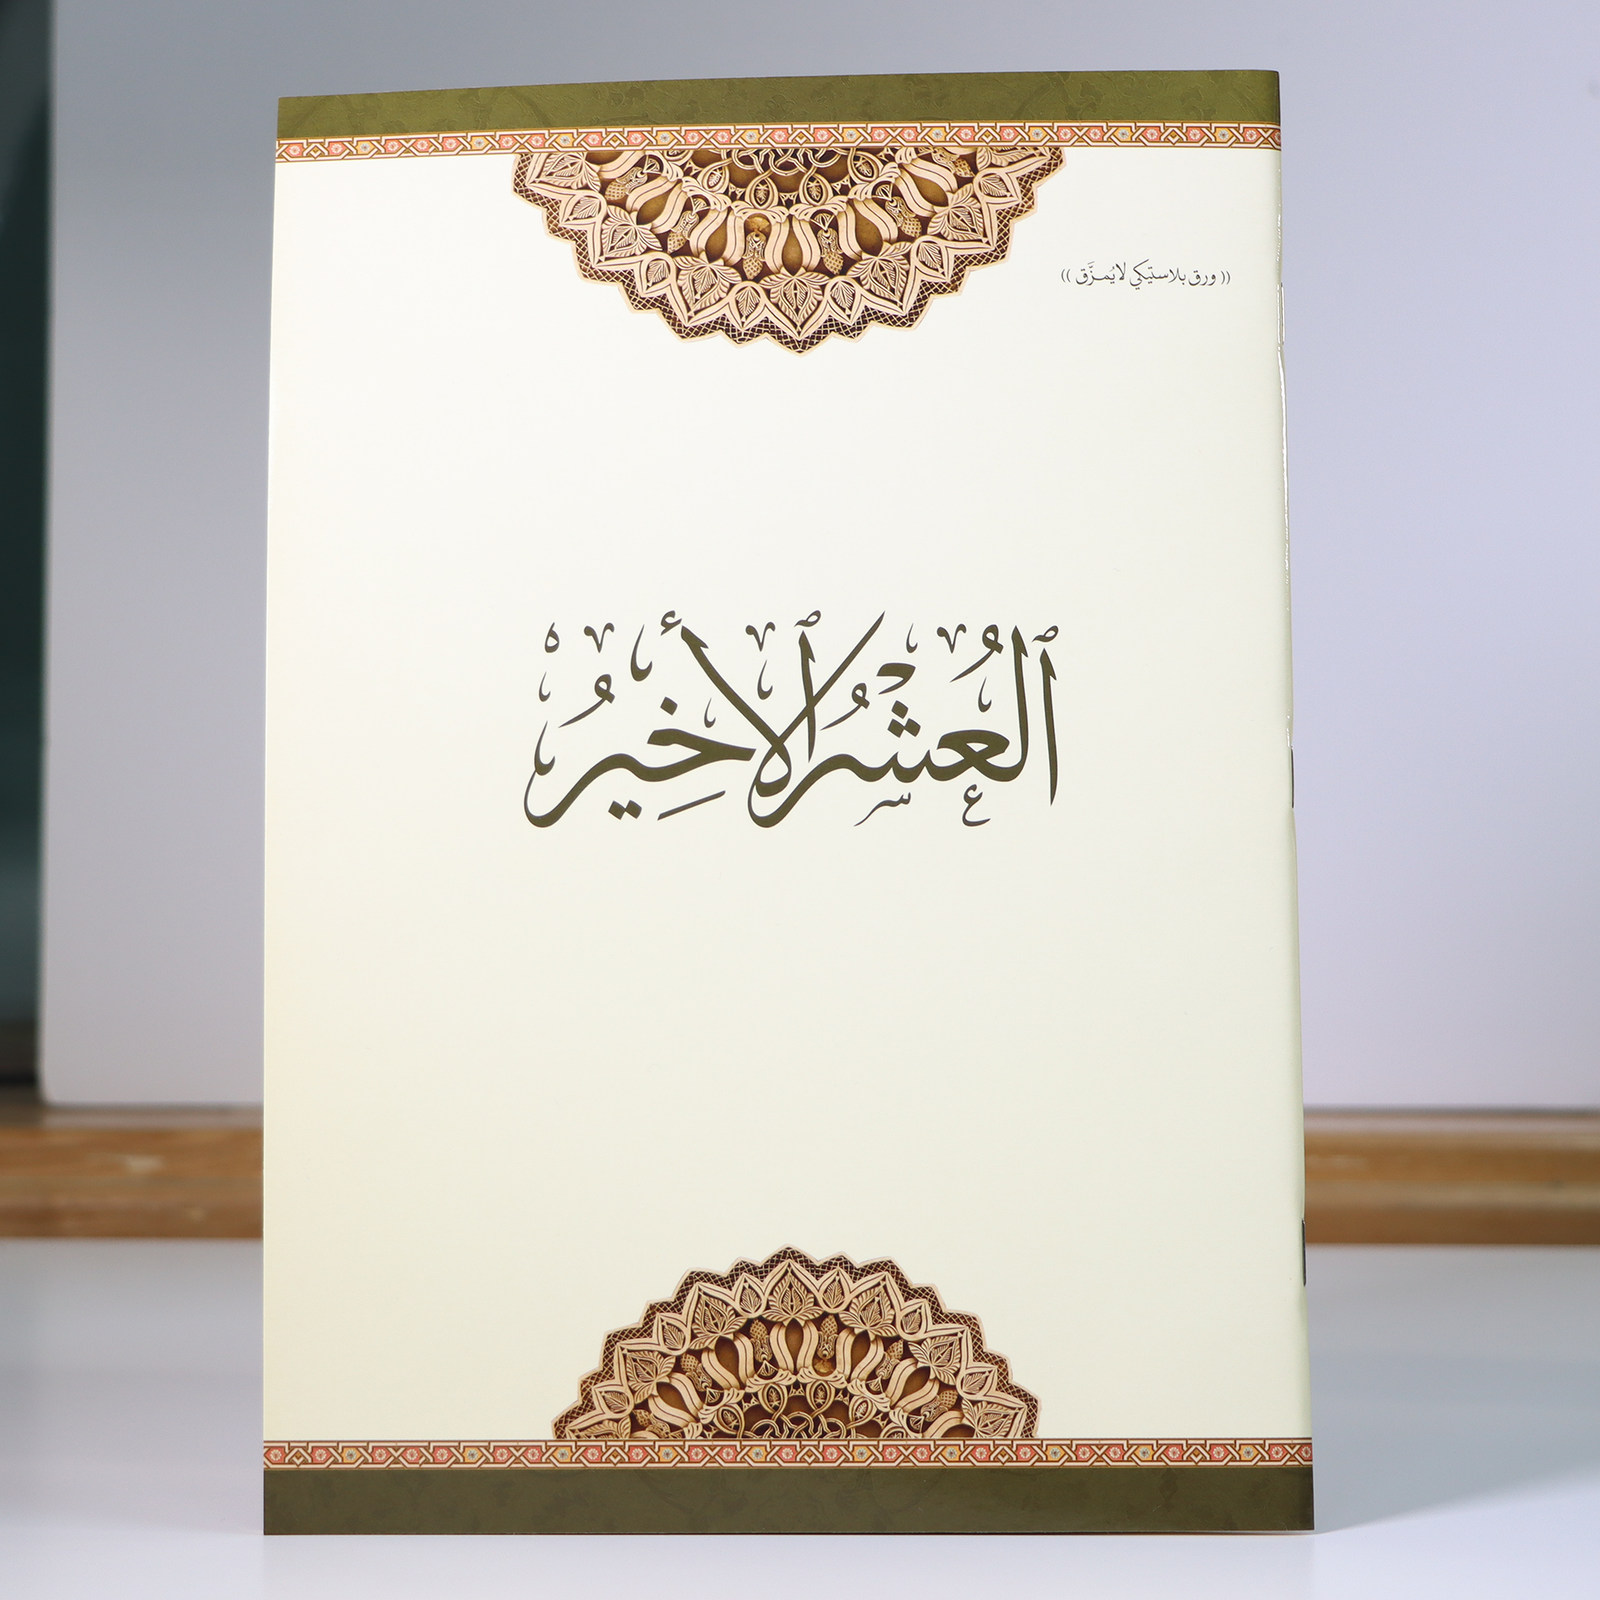 (( ورق بلاستيكي لا يُمزَّق ))
ٱلْعُشْرُ ٱلأَخِيرُ